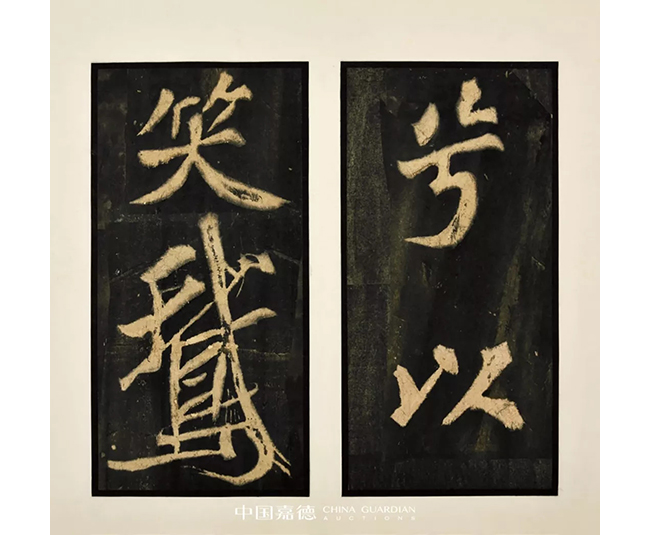 兮以
笑鵞
中国嘉德 CHINA GUARDIAN
AUCTIONS